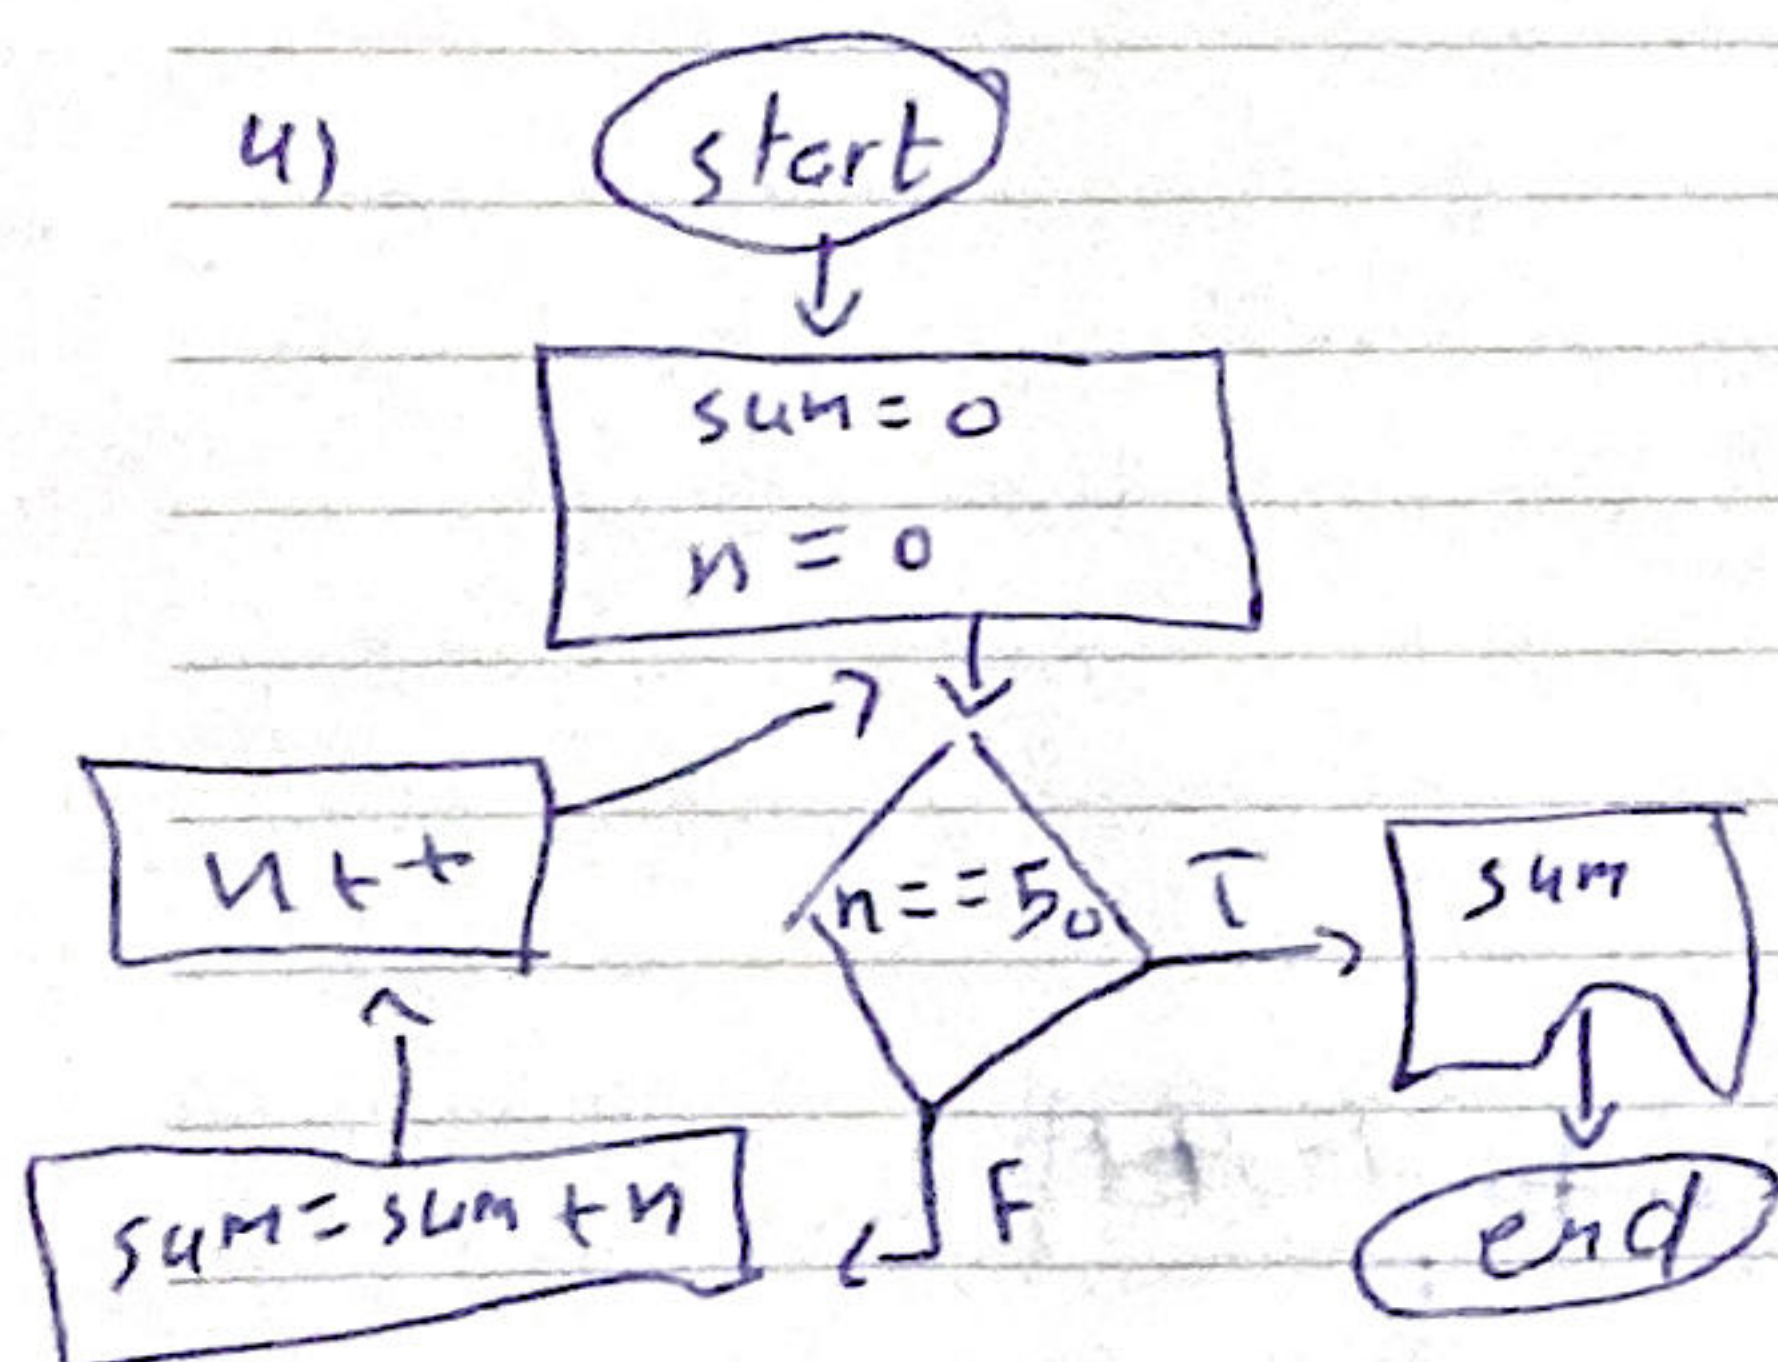 4)
start
sum = 0
n = 0
n++
n == 50
T
sum
sum = sum + n
F
end